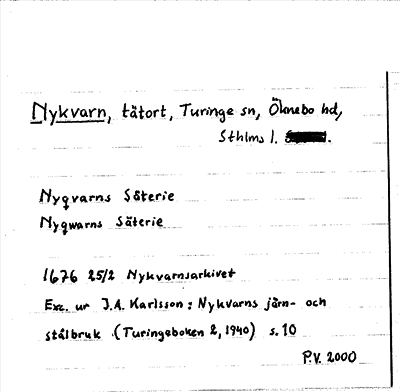 Nykvarn, tätort, Turinge sn, Öknebo hd,
Sthlms l.
Nyqvarns Säterie
Nyqwarns Säterie
1676 25/2 Nykvarnsarkivet
Exc. ur J.A. Karlsson: Nykvarns järn- och
stålbruk (Turingeboken 2, 1940) s. 10
P.V. 2000